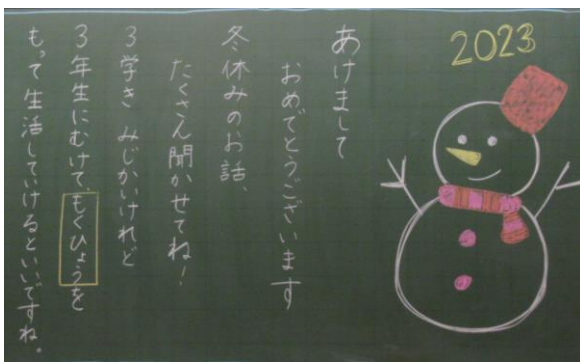 2023
あけまして
おめでとうございます
冬休みのお話、
たくさん聞かせてね!
3学き みじかいけれど
3年生にむけて、もくひょうを
もって生活していけるといいですね。